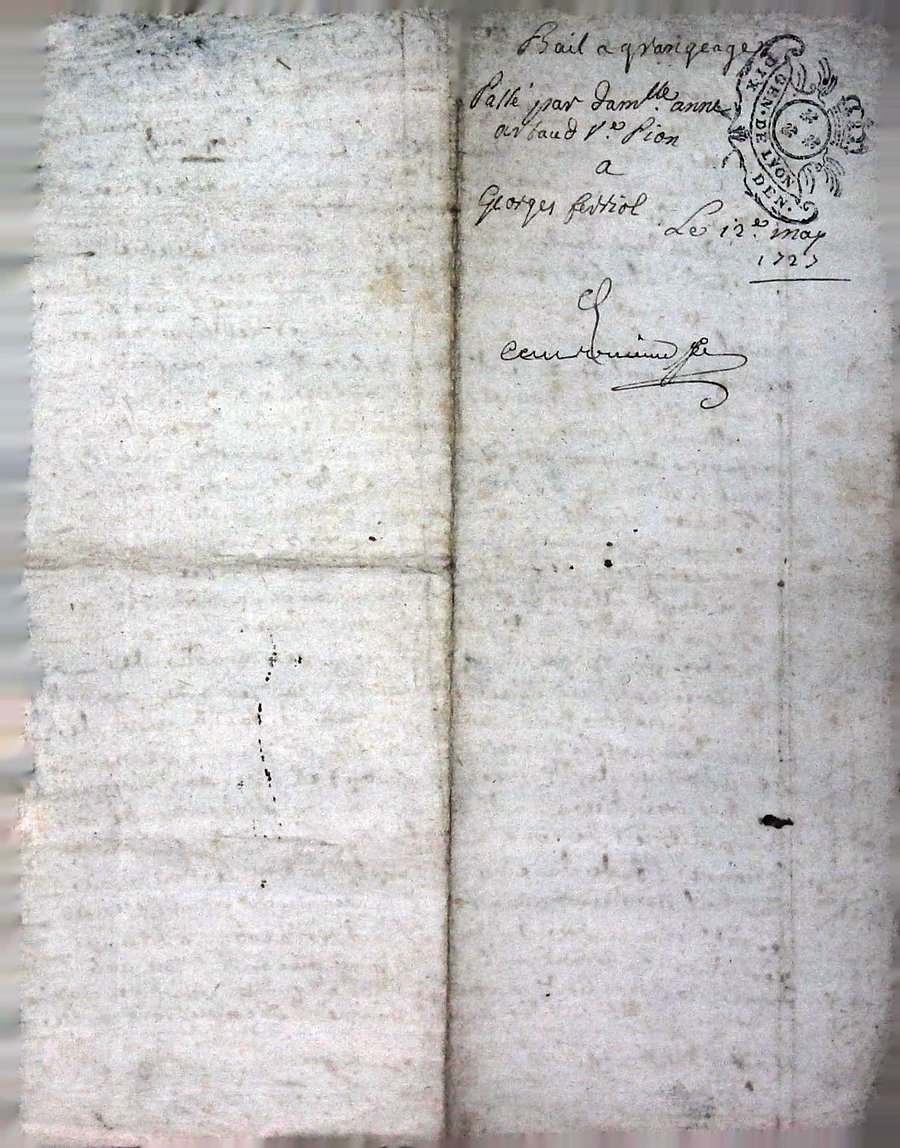 Bail a grangeage
Passé par dam.lle anne
artaud v.e Pion
a
Georges ferriol
Le 12.e may
1727
GEN. DE LYON
DIX DEN.